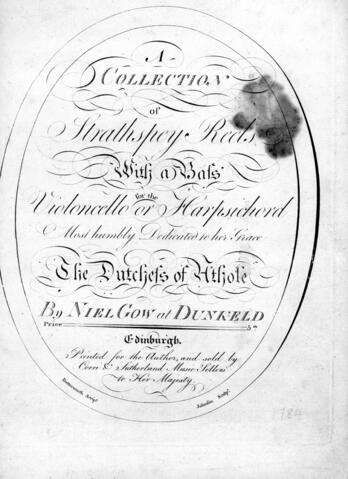 A
COLLECTION
of
Strathspey Reels
With a Bass
for the
Violoncello or Harpsichord
Most humbly Dedicated to her Grace
The Dutchess of Athole
By NIEL GOW at DUNKELD
Price 5s.
Edinburgh.
Printed for the Author, and sold by
Corri & Sutherland Music Sellers
to Her Majesty
1784